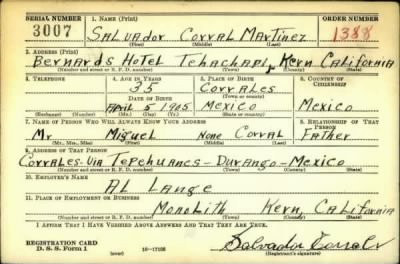 SERIAL NUMBER 1. NAME (Print) ORDER NUMBER
3007 SALVADOR CORRAL MARTINEZ 1388
(First) (Middle) (Last)
2. ADDRESS (Print)
BERNARDS HOTEL TEHACHAPI, KERN CALIFORNIA
(Number and street or R. F. D. number) (Town) (County) (State)
3. TELEPHONE 4. AGE IN YEARS 5. PLACE OF BIRTH 6. COUNTRY OF CITIZENSHIP
35 CORRALES
DATE OF BIRTH (Town or county)
APRIL 5 1905 MEXICO MEXICO
(Exchange) (Number) (Mo.) (Day) (Yr.) (State or country)
7. NAME OF PERSON WHO WILL ALWAYS KNOW YOUR ADDRESS 8. RELATIONSHIP OF THAT PERSON
Mr Miguel None Corral Father
(Mr., Mrs., Miss) (First) (Middle) (Last)
9. ADDRESS OF THAT PERSON
Corrales-Via Tepehuanes-Durango-Mexico
(Number and street or R. F. D. number) (Town) (County) (State)
10. EMPLOYER'S NAME
AL Lange
11. PLACE OF EMPLOYMENT OR BUSINESS
Monolith Kern, California
(Number and street or R. F. D. number) (Town) (County) (State)
I AFFIRM THAT I HAVE VERIFIED ABOVE ANSWERS AND THAT THEY ARE TRUE.
REGISTRATION CARD
D. S. S. Form 1 (over) 16-17105 Salvador Corral
(Registrant's signature)